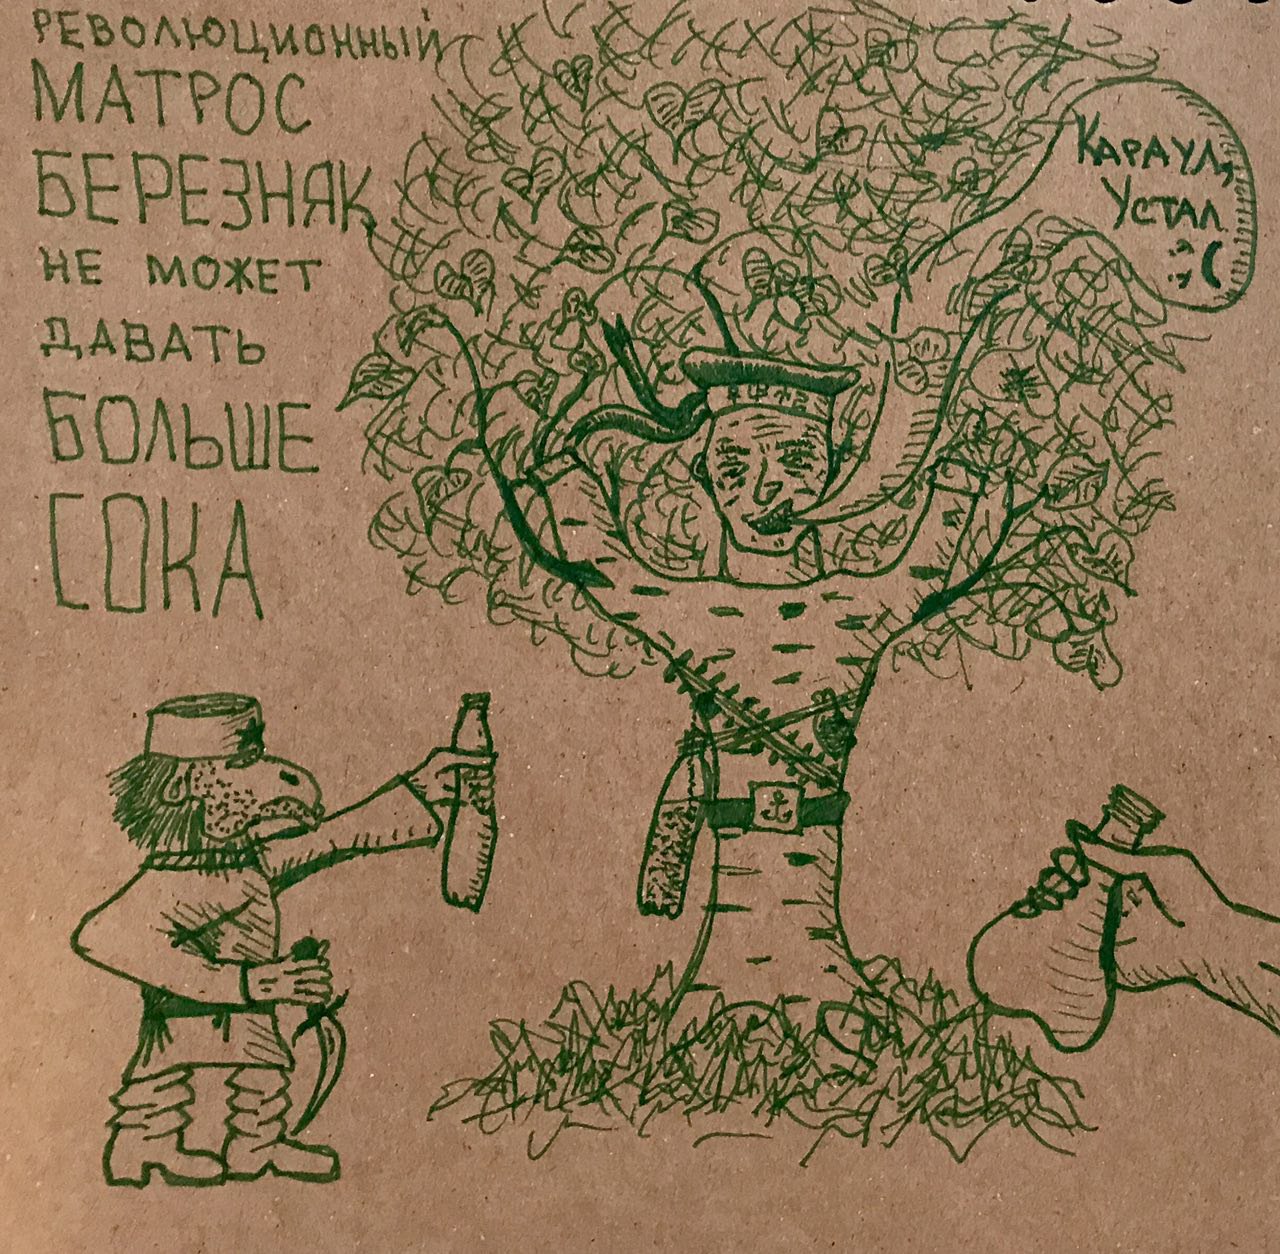 РЕВОЛЮЦИОННЫЙ
МАТРОС
БЕРЕЗНЯК
НЕ МОЖЕТ
ДАВАТЬ
БОЛЬШЕ
СОКА
КАРАУЛ,
УСТАЛ
:;(